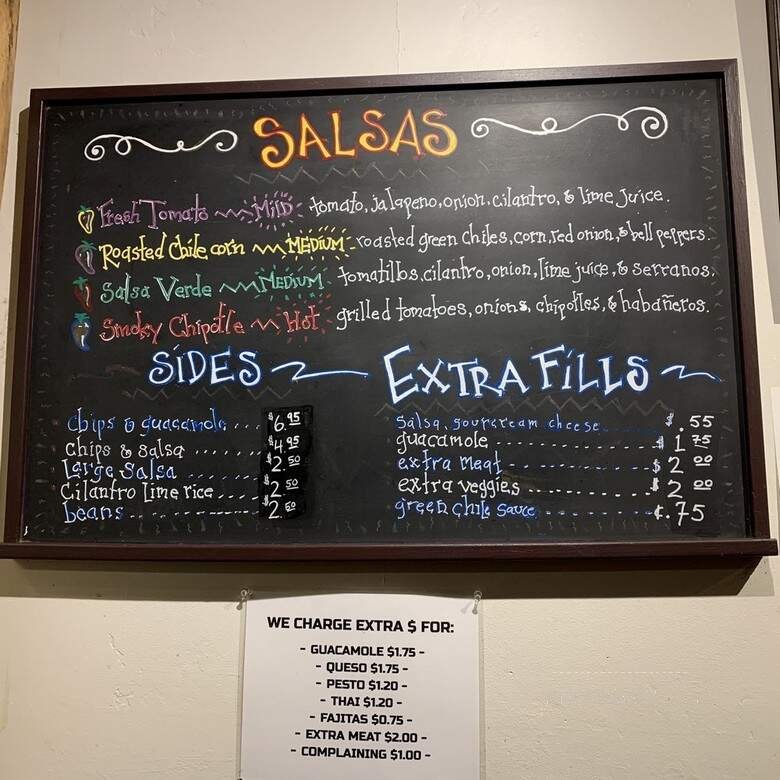 SALSAS
Fresh Tomato MILD tomato, jalapeno, onion, cilantro, & lime juice.
Roasted Chile corn MEDIUM roasted green chiles, corn, red onion, & bell peppers.
Salsa Verde MEDIUM tomatillos, cilantro, onion, lime juice, & serranos.
Smoky Chipotle Hot grilled tomatoes, onions, chipotles, & habañeros.
SIDES
chips & guacamole .... $6.95
chips & salsa ...... $4.95
Large Salsa ...... $2.50
Cilantro lime rice ..... $2.50
beans .............. $2.50
EXTRA FILLS
Salsa, sour cream, cheese ...... $.55
guacamole .................. $1.75
extra meat .................. $2.00
extra veggies ............... $2.00
green chile sauce ............ ¢.75
WE CHARGE EXTRA $ FOR:
- GUACAMOLE $1.75 -
- QUESO $1.75 -
- PESTO $1.20 -
- THAI $1.20 -
- FAJITAS $0.75 -
- EXTRA MEAT $2.00 -
- COMPLAINING $1.00 -